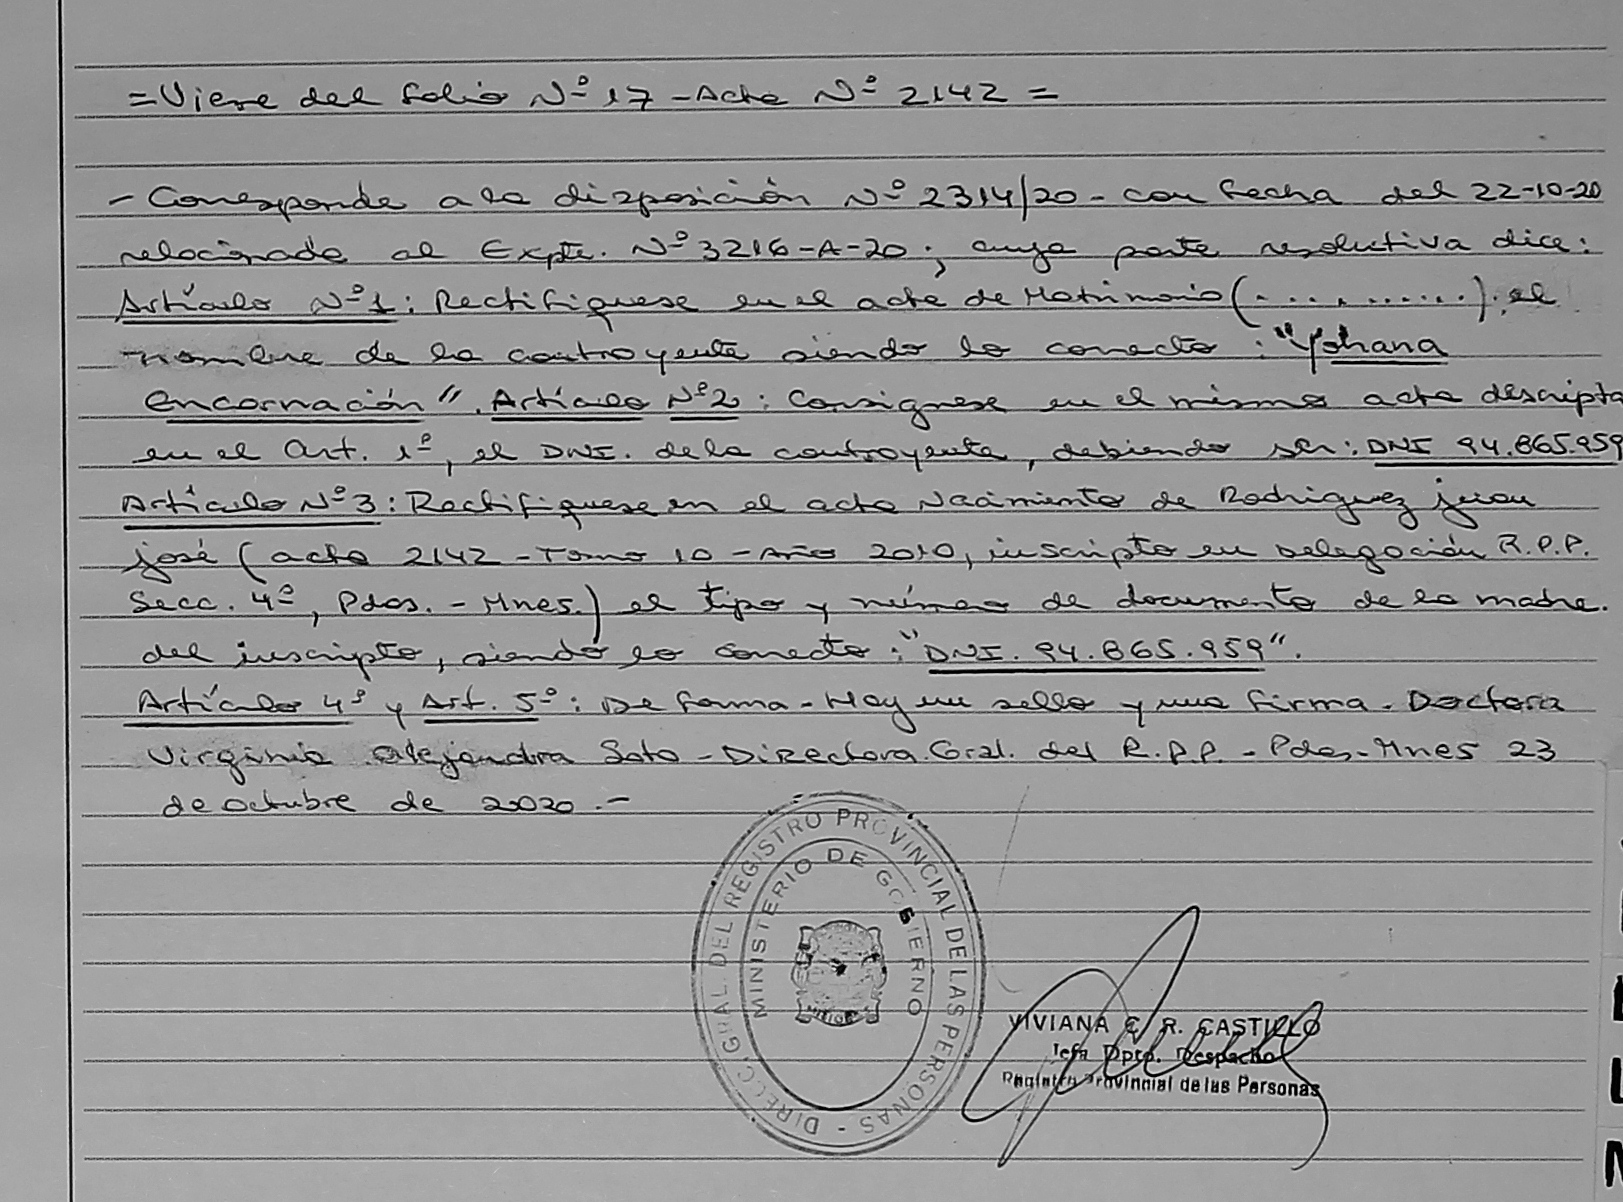 =Viene del folio Nº 17 - Acta Nº 2142 =
- Corresponde a la disposición Nº 2314/20 - con fecha del 22-10-20
relacionado al Expte. Nº 3216-A-20; cuya parte resolutiva dice:
Artículo Nº1: Rectifiquese en el acta de Matrimonio (...........), el
nombre de la contrayente siendo lo correcto: "Yohana
Encarnación". Artículo Nº2: Consignese en el mismo acta descripta
en el Art. 1º, el DNI. de la contrayente, debiendo ser: DNI 94.865.959
Artículo Nº3: Rectifiquese en el acta Nacimiento de Rodriguez juan
josé (acta 2142 - Tomo 10 - Año 2010, inscripto en Delegación R.P.P.
Secc. 4º, Pdas. - Mnes.) el tipo y número de documento de la madre.
del inscripto, siendo lo correcto: "DNI. 94.865.959".
Artículo 4º y Art. 5º: De forma - Hay un sello y una firma. Doctora
Virginia Alejandra Soto - Directora Gral. del R.P.P. - Pdas - Mnes 23
de octubre de 2020.-
DIRECC. GRAL. DEL REGISTRO PROVINCIAL DE LAS PERSONAS -
MINISTERIO DE GOBIERNO
VIVIANA C. R. CASTILLO
Jefa Dpto. Despacho
Registro Provincial de las Personas